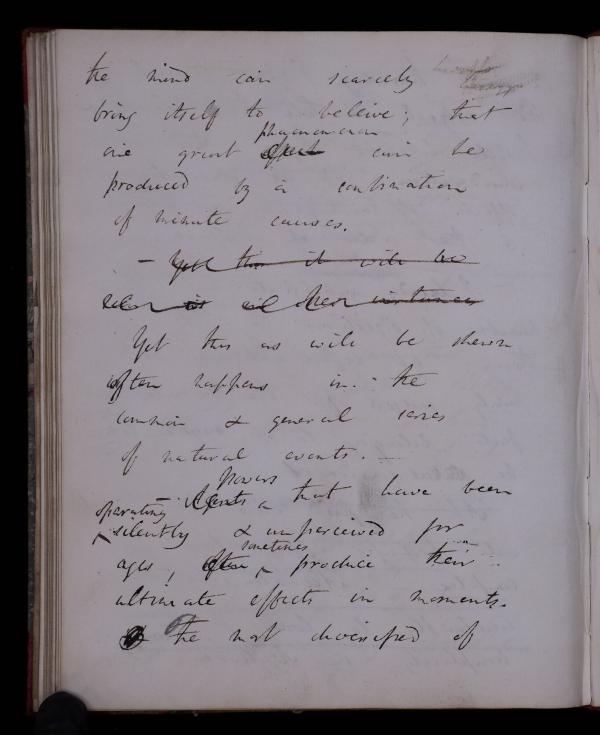 the mind can scarcely
bring itself to beleive; that
one great effect phenomenon can be
produced by a combination
of minute causes.
- Yet this it will be
in instances
Yet this as will be shewn
often happens in the
common & general series
of natural events. -
- Agents powers that have been
operating silently & unperceived for
ages, often sometimes produce their
ultimate effects in moments.
the most diversified of